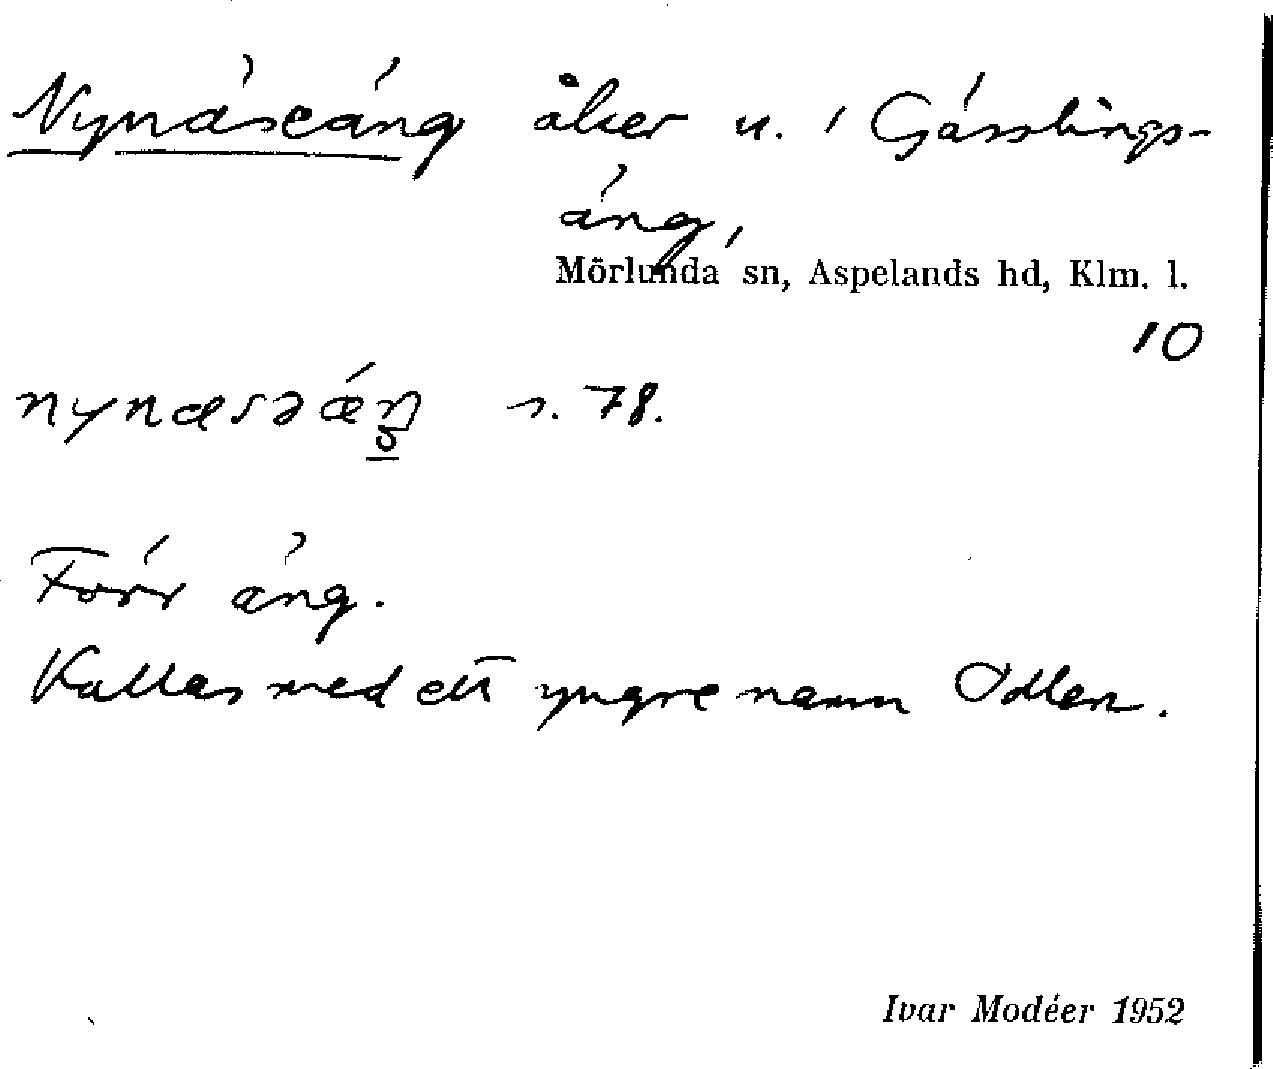 Nynäseäng åker u. ˊGässlings-
äng,
Mörlunda sn, Aspelands hd, Klm. l.
10
nynæsəǽŋ s. 78.
Förr äng.
Kallas med ett yngre namn Odlen.
Ivar Modéer 1952